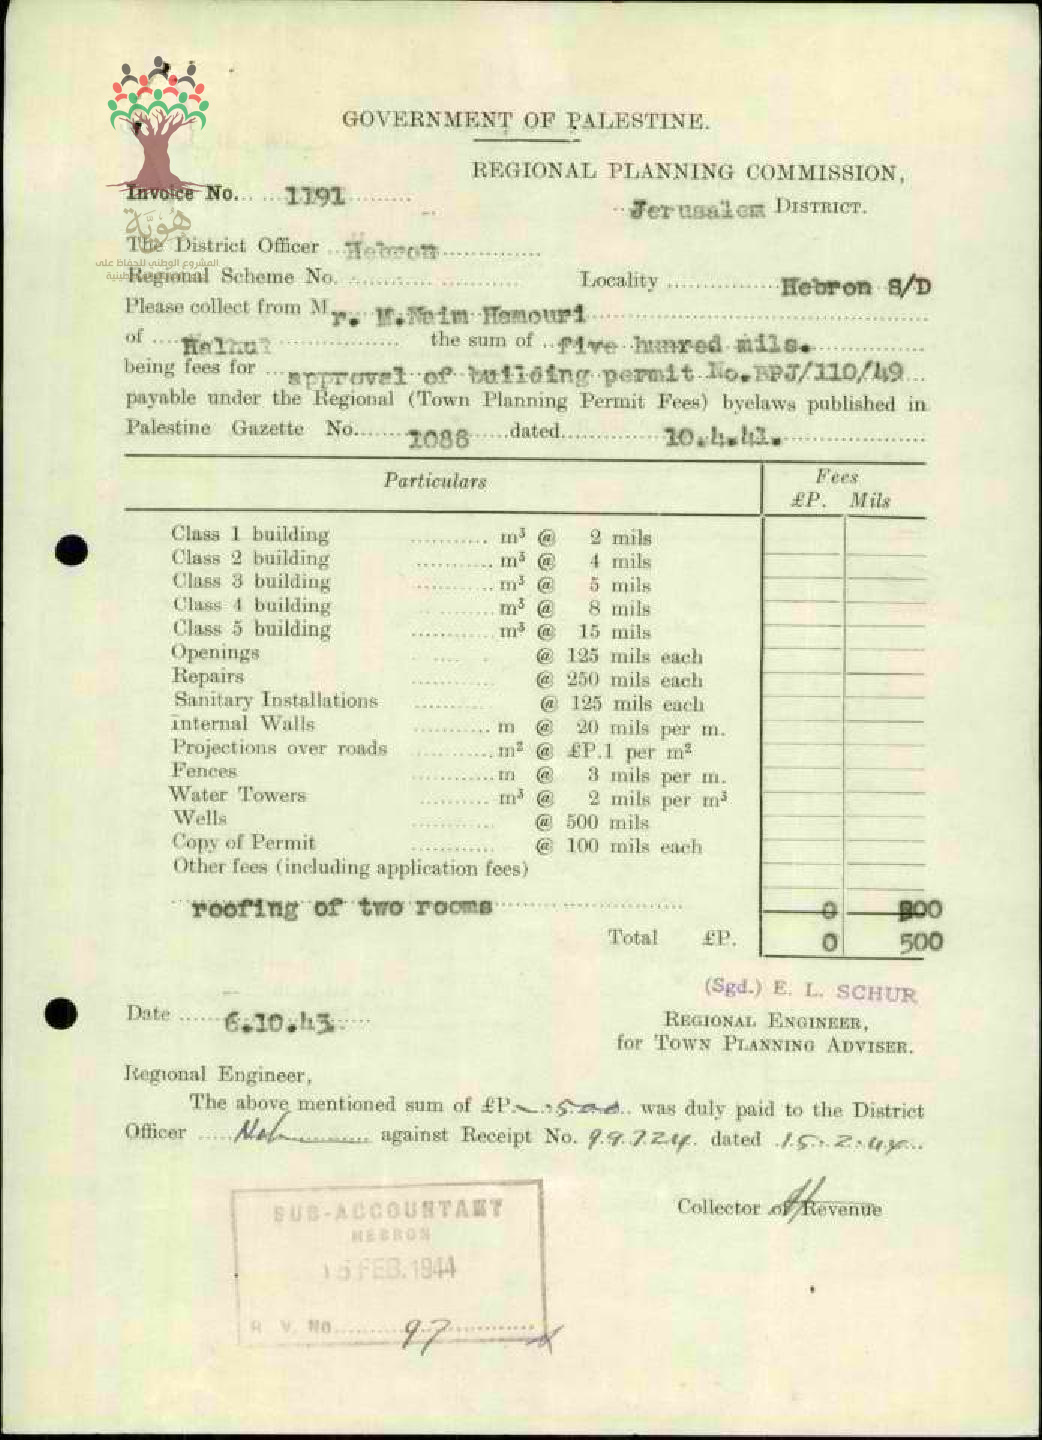 GOVERNMENT OF PALESTINE.
REGIONAL PLANNING COMMISSION,
Invoice No. 1191
Jerusalem DISTRICT.
هُوِيَّة
The District Officer Hebron
المشروع الوطني للحفاظ على
Regional Scheme No. Locality Hebron S/D
Please collect from Mr. M.Naim Hamouri
of Halhul the sum of five hunred mils.
being fees for approval of building permit No. /110/49
payable under the Regional (Town Planning Permit Fees) byelaws published in
Palestine Gazette No. 1088 dated 10.4.41.
Particulars Fees
£P. Mils
Class 1 building m³ @ 2 mils
Class 2 building m³ @ 4 mils
Class 3 building m³ @ 5 mils
Class 4 building m³ @ 8 mils
Class 5 building m³ @ 15 mils
Openings @ 125 mils each
Repairs @ 250 mils each
Sanitary Installations @ 125 mils each
Internal Walls m @ 20 mils per m.
Projections over roads m² @ £P.1 per m²
Fences m @ 3 mils per m.
Water Towers m³ @ 2 mils per m³
Wells @ 500 mils
Copy of Permit @ 100 mils each
Other fees (including application fees)
roofing of two rooms 0
Total £P. 0 500
(Sgd.) E. L. SCHUR
Date 6.10.43.
REGIONAL ENGINEER,
for TOWN PLANNING ADVISER.
Regional Engineer,
The above mentioned sum of £P. -.500 was duly paid to the District
Officer Heb against Receipt No. 99724 dated 15.2.44
Collector of Revenue
SUB-ACCOUNTANT
HEBRON
15 FEB. 1944
R. V. No. 97